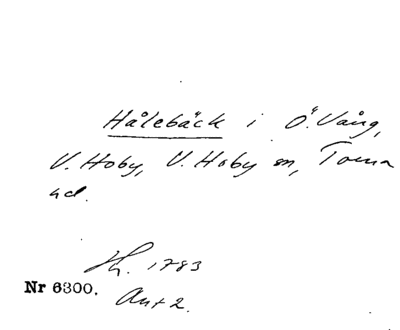 Hålebäck i Ö. Vång,
V. Hoby, V. Hoby sn, Torna
hd.
Th. 1783
Nr 6300. Ant 2.